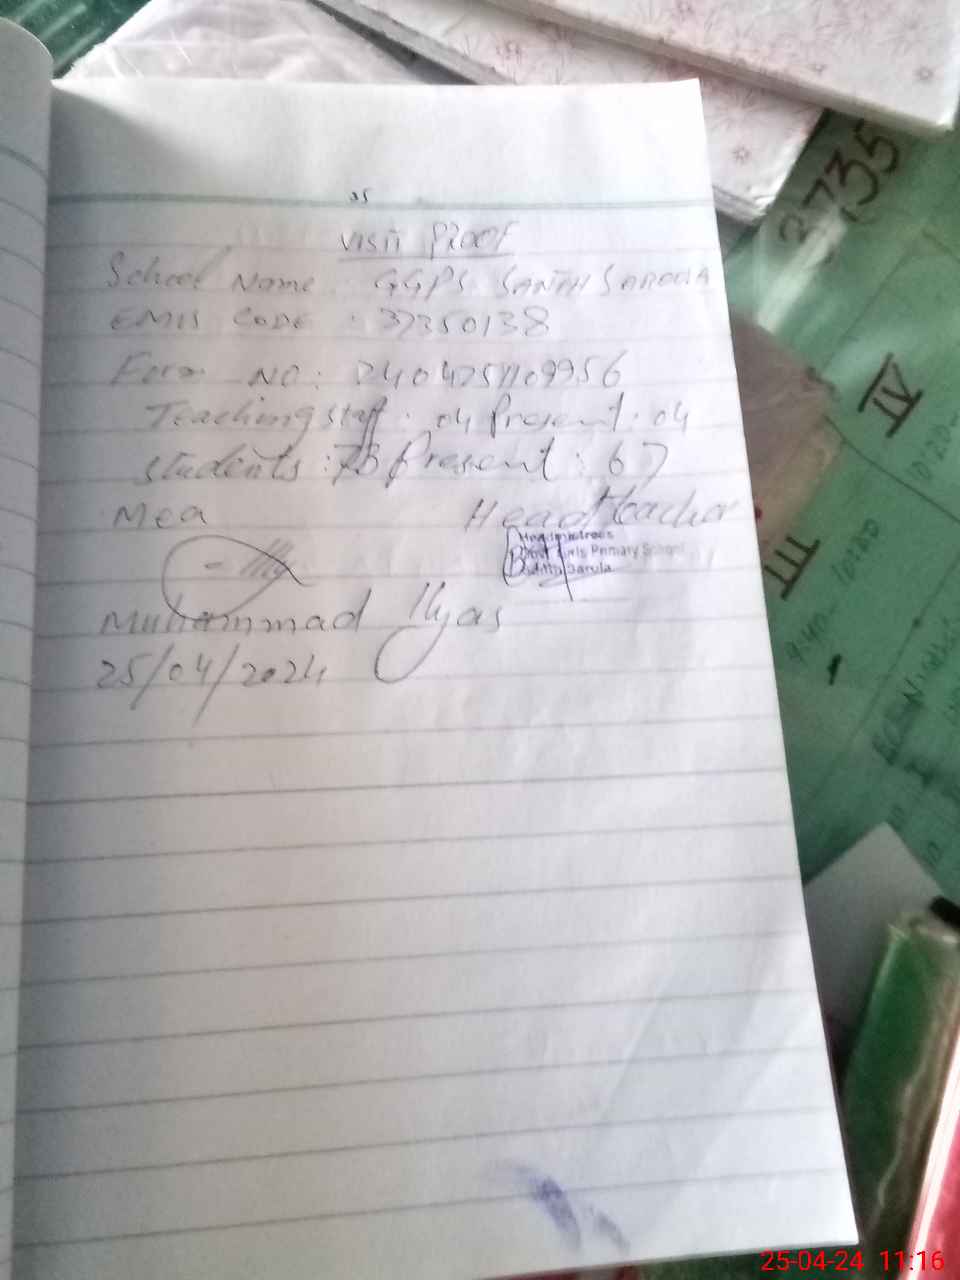 35
VISIT PROOF
School Name : GGPS SANTH SAROLA
EMIS CODE : 37350138
Form NO : 2404251109956
Teaching staff : 04 Present : 04
Students : 78 Present : 67
Mea Head teacher
Headmistress
Govt Girls Primary School
Sarula
Muhammad Ilyas
25/04/2024
2735
IV
III
10:20
9:40 - 10:20
I
25-04-24 11:16